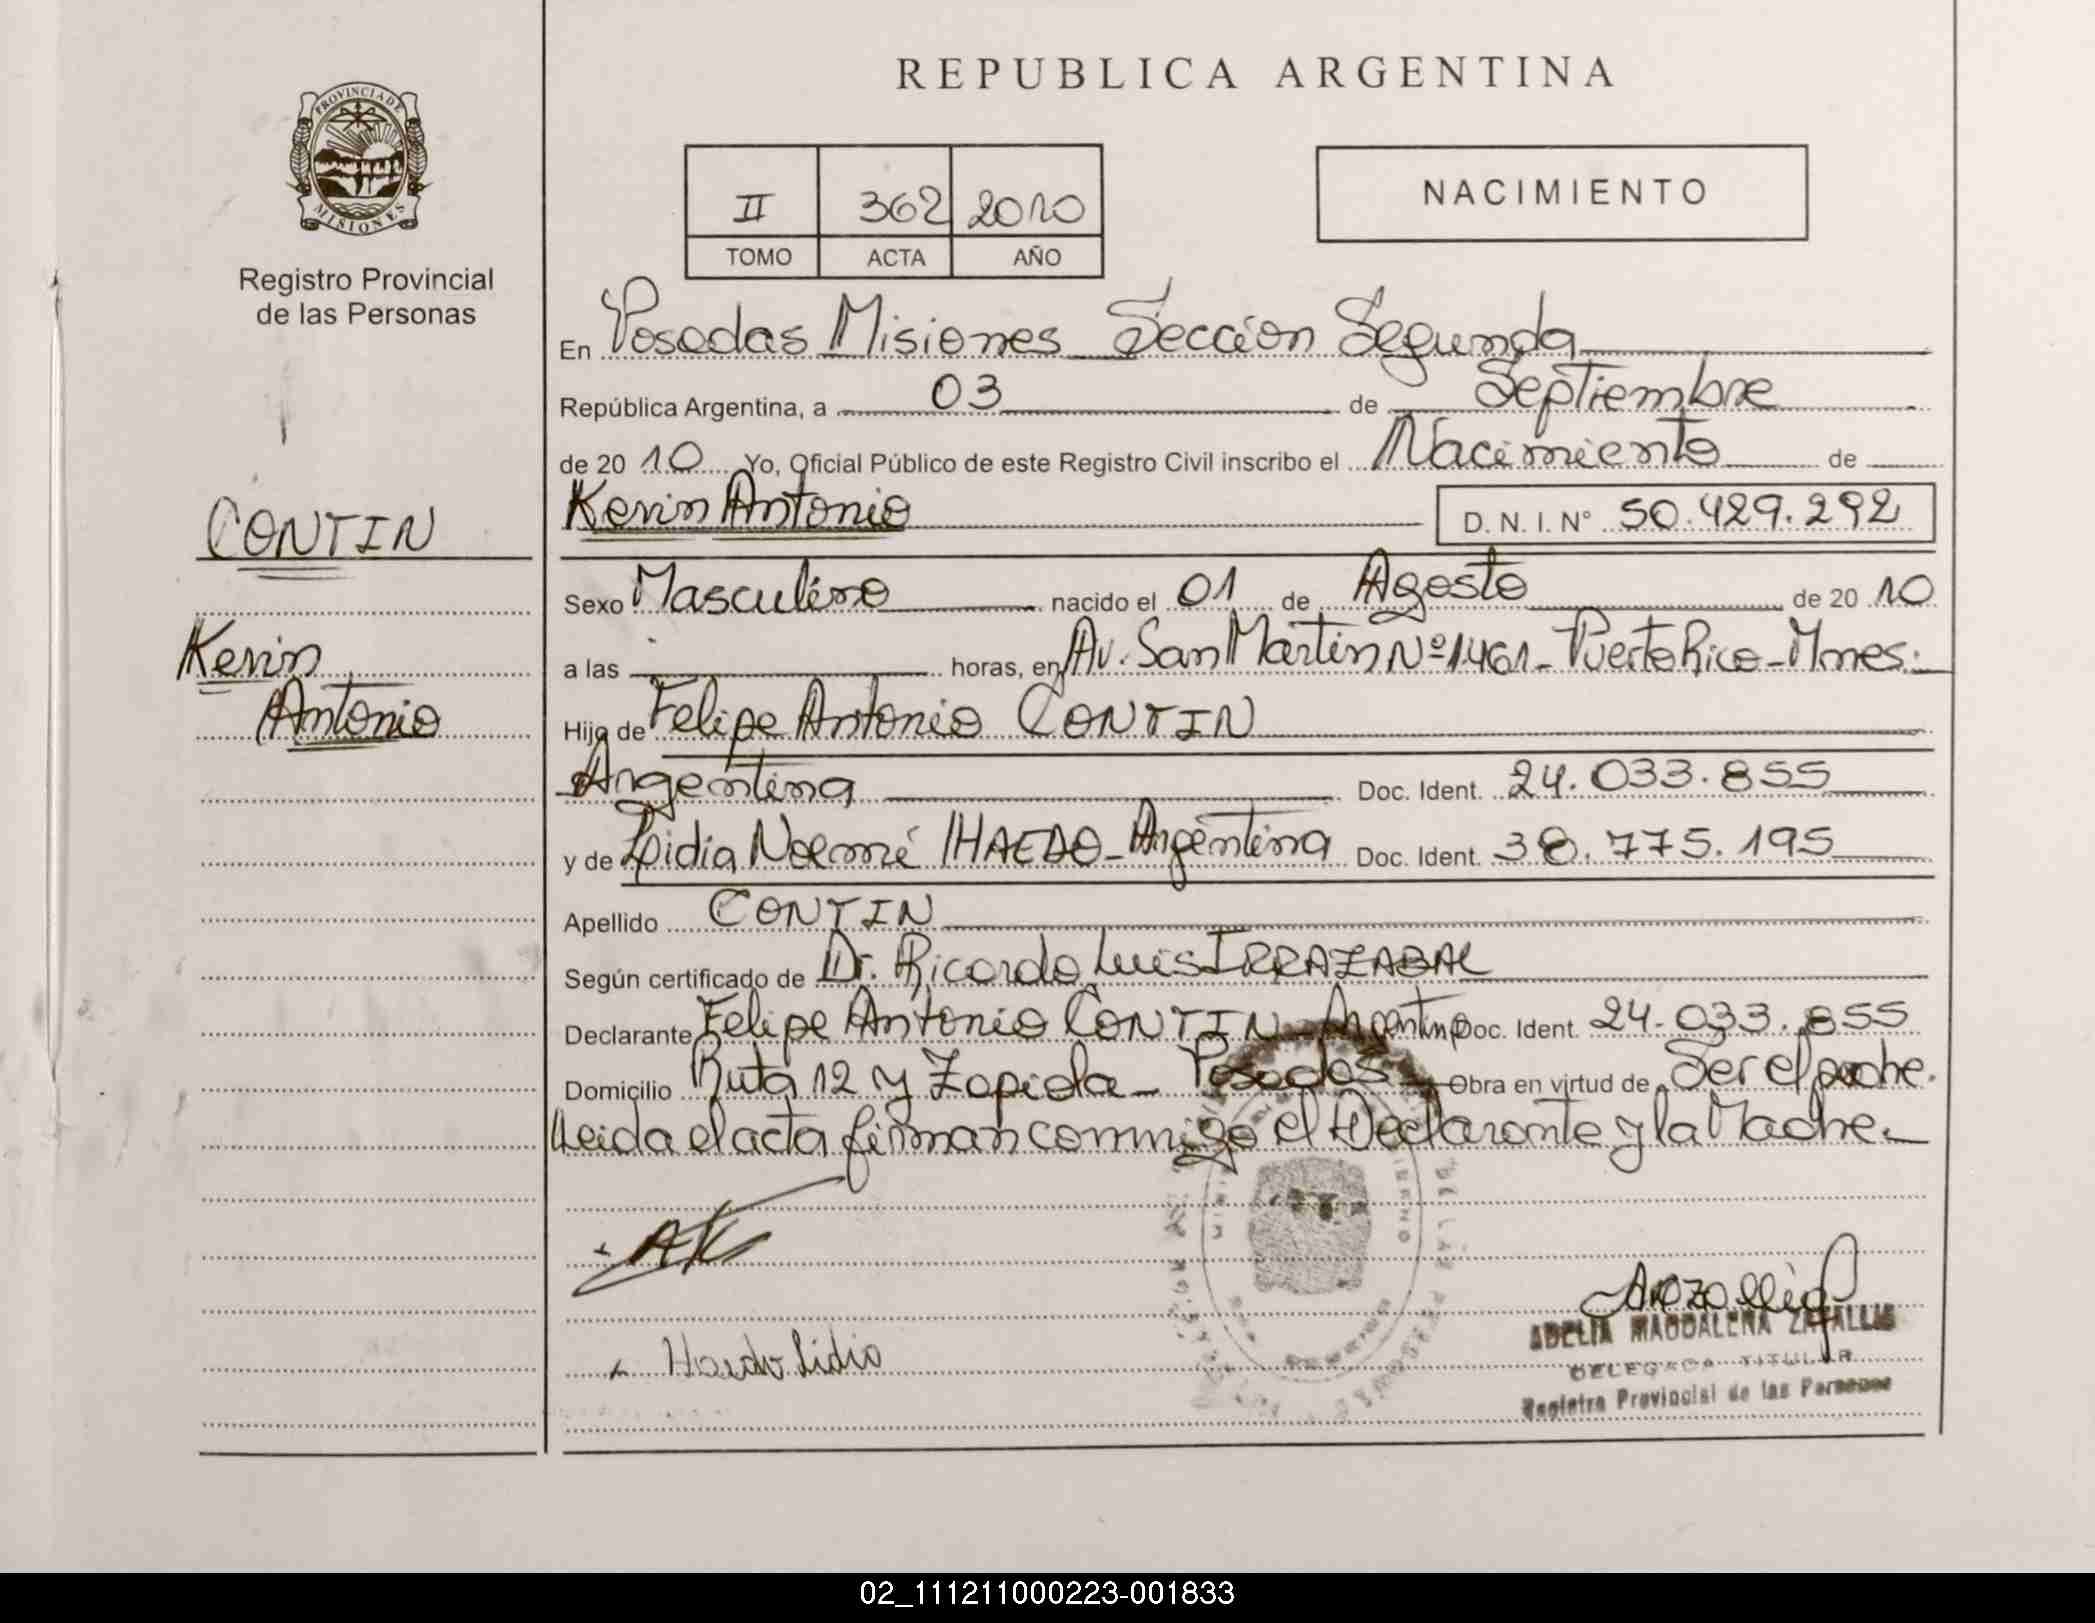 PROVINCIA DE
MISIONES
Registro Provincial
de las Personas
CONTIN
Kevin
Antonio
REPUBLICA ARGENTINA
II 362 2010
TOMO ACTA AÑO
NACIMIENTO
En Posadas Misiones Sección Segunda
República Argentina, a 03 de Septiembre
de 20 10 Yo, Oficial Público de este Registro Civil inscribo el Nacimiento de
Kevin Antonio D. N. I. N° 50.429.292
Sexo Masculino nacido el 01 de Agosto de 20 10
a las horas, en Av. San Martin Nº 1461 - Puerto Rico - Mnes.
Hijo de Felipe Antonio CONTIN
Argentina Doc. Ident. 24.033.855
y de Lidia Noemí HAEDO - Argentina Doc. Ident. 38.775.195
Apellido CONTIN
Según certificado de Dr. Ricardo Luis IRRAZABAL
Declarante Felipe Antonio CONTIN - Argentina Doc. Ident. 24.033.855
Domicilio Ruta 12 y Zapiola - Posadas - Obra en virtud de Ser el padre.
Leida el acta firman conmigo el Declarante y la Madre.
Haedo Lidia
ADELIA MAGDALENA
DELEGADA TITULAR
Registro Provincial de las Personas
02_111211000223-001833